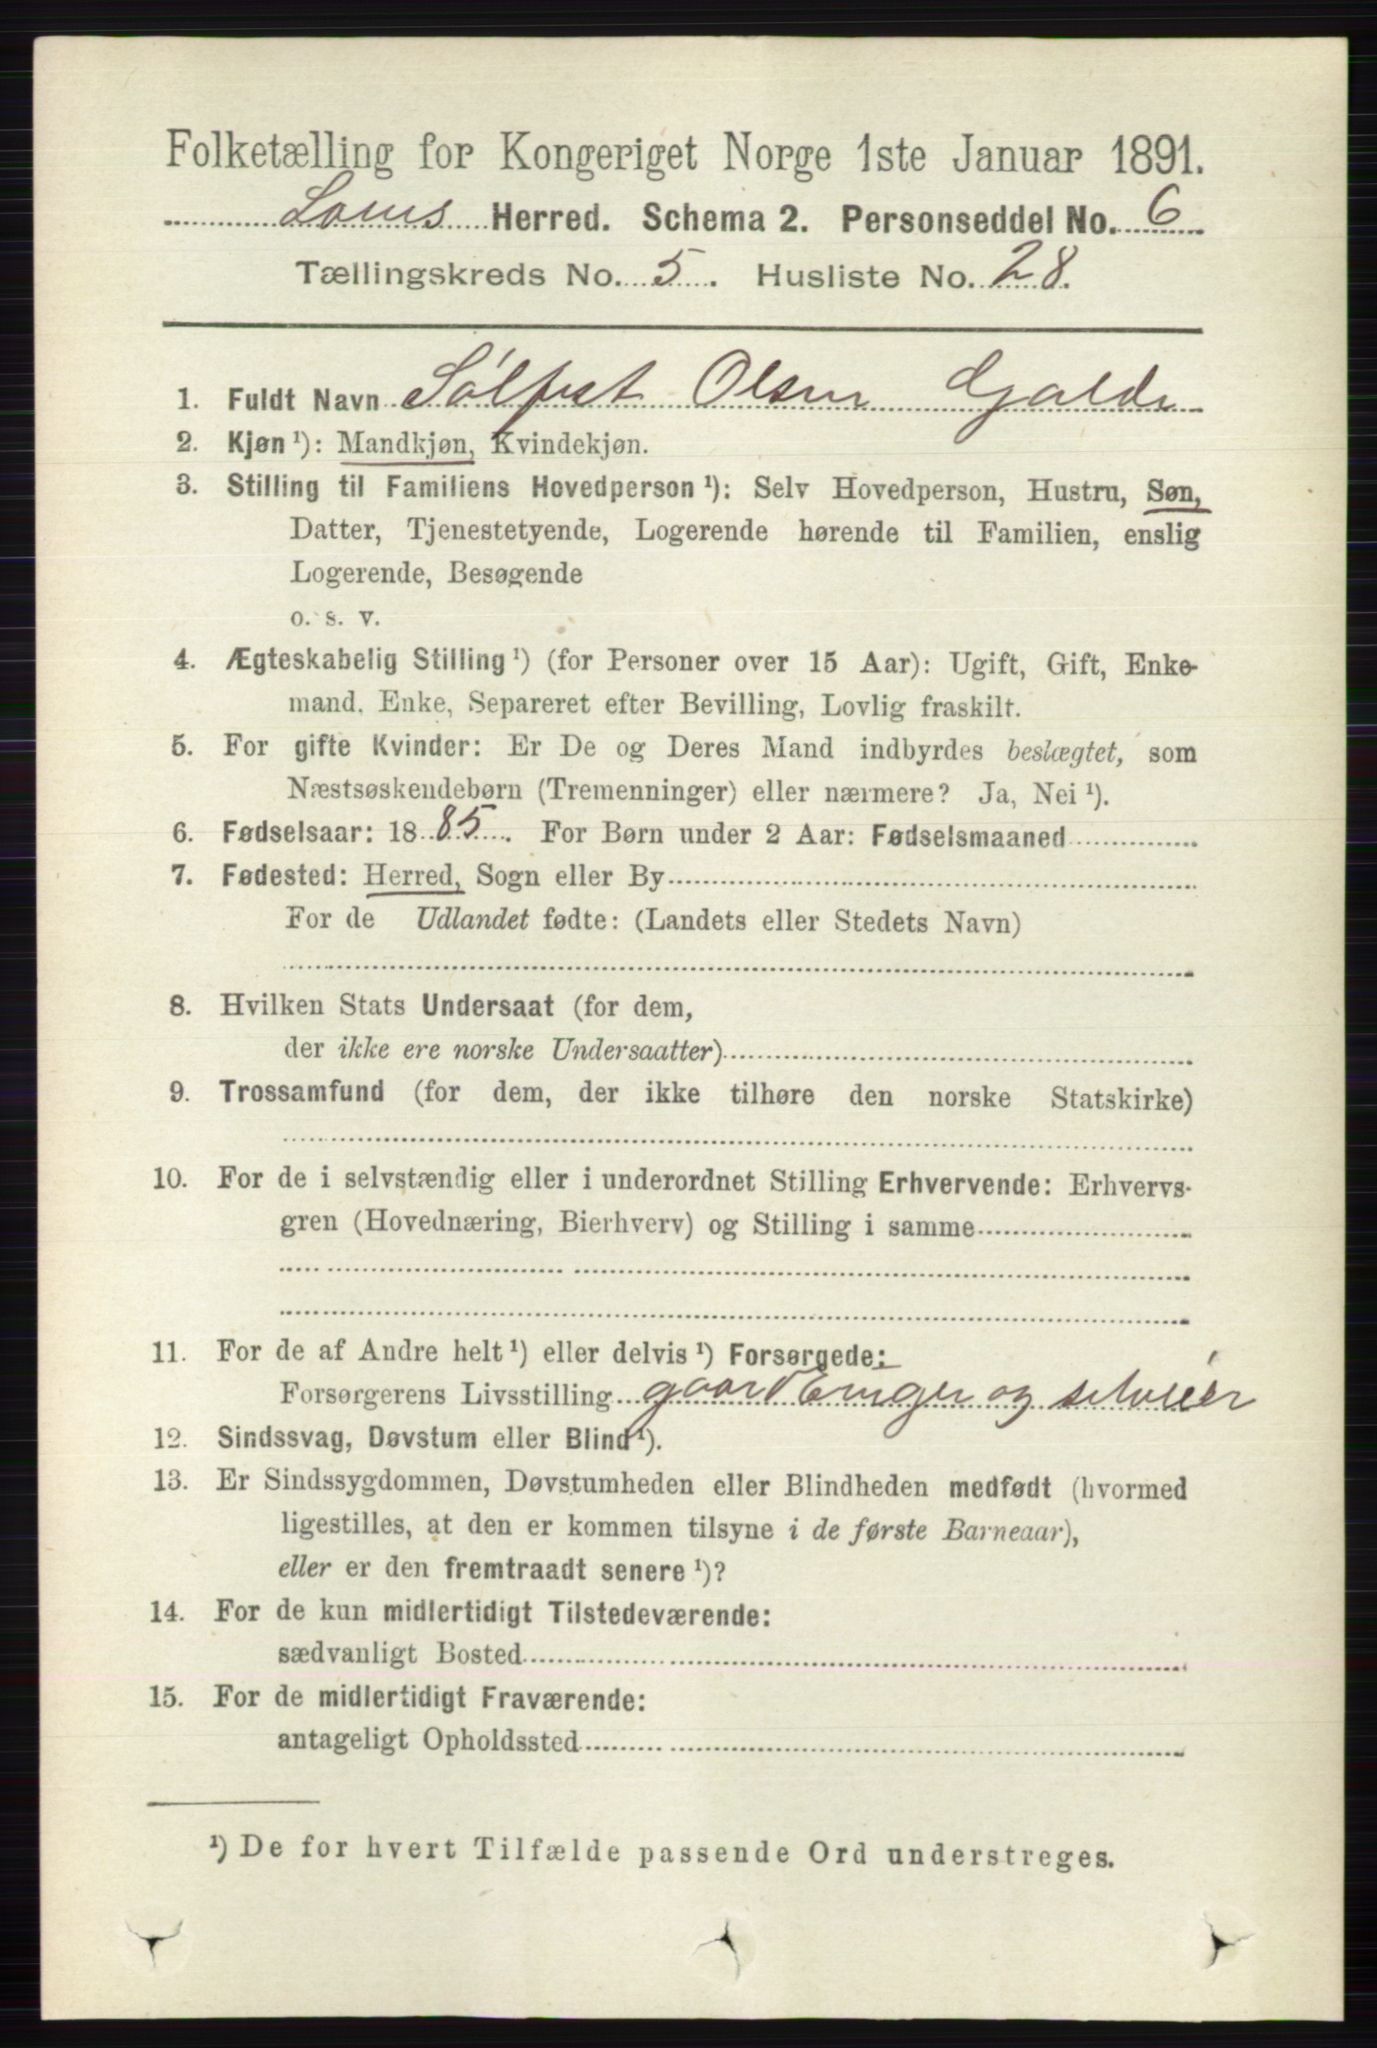 Folketælling for Kongeriget Norge 1ste Januar 1891.
Loms Herred. Schema 2. Personseddel No. 6
Tællingskreds No. 5. Husliste No. 28.
1. Fuldt Navn Sölfest Olsen Galde
2. Kjøn ¹): Mandkjøn, Kvindekjøn.
3. Stilling til Familiens Hovedperson ¹): Selv Hovedperson, Hustru, Søn,
Datter, Tjenestetyende, Logerende hørende til Familien, enslig
Logerende, Besøgende
o. s. v.
4. Ægteskabelig Stilling ¹) (for Personer over 15 Aar): Ugift, Gift, Enke-
mand, Enke, Separeret efter Bevilling, Lovlig fraskilt.
5. For gifte Kvinder: Er De og Deres Mand indbyrdes beslægtet, som
Næstsøskendebørn (Tremenninger) eller nærmere? Ja, Nei ¹).
6. Fødselsaar: 1885. For Børn under 2 Aar: Fødselsmaaned
7. Fødested: Herred, Sogn eller By
For de Udlandet fødte: (Landets eller Stedets Navn)
8. Hvilken Stats Undersaat (for dem,
der ikke ere norske Undersaatter)
9. Trossamfund (for dem, der ikke tilhøre den norske Statskirke)
10. For de i selvstændig eller i underordnet Stilling Erhvervende: Erhvervs-
gren (Hovednæring, Bierhverv) og Stilling i samme
11. For de af Andre helt ¹) eller delvis ¹) Forsørgede:
Forsørgerens Livsstilling gaardbruger og selveier
12. Sindssvag, Døvstum eller Blind ¹).
13. Er Sindssygdommen, Døvstumheden eller Blindheden medfødt (hvormed
ligestilles, at den er kommen tilsyne i de første Barneaar),
eller er den fremtraadt senere ¹)?
14. For de kun midlertidigt Tilstedeværende:
sædvanligt Bosted
15. For de midlertidigt Fraværende:
antageligt Opholdssted
¹) De for hvert Tilfælde passende Ord understreges.